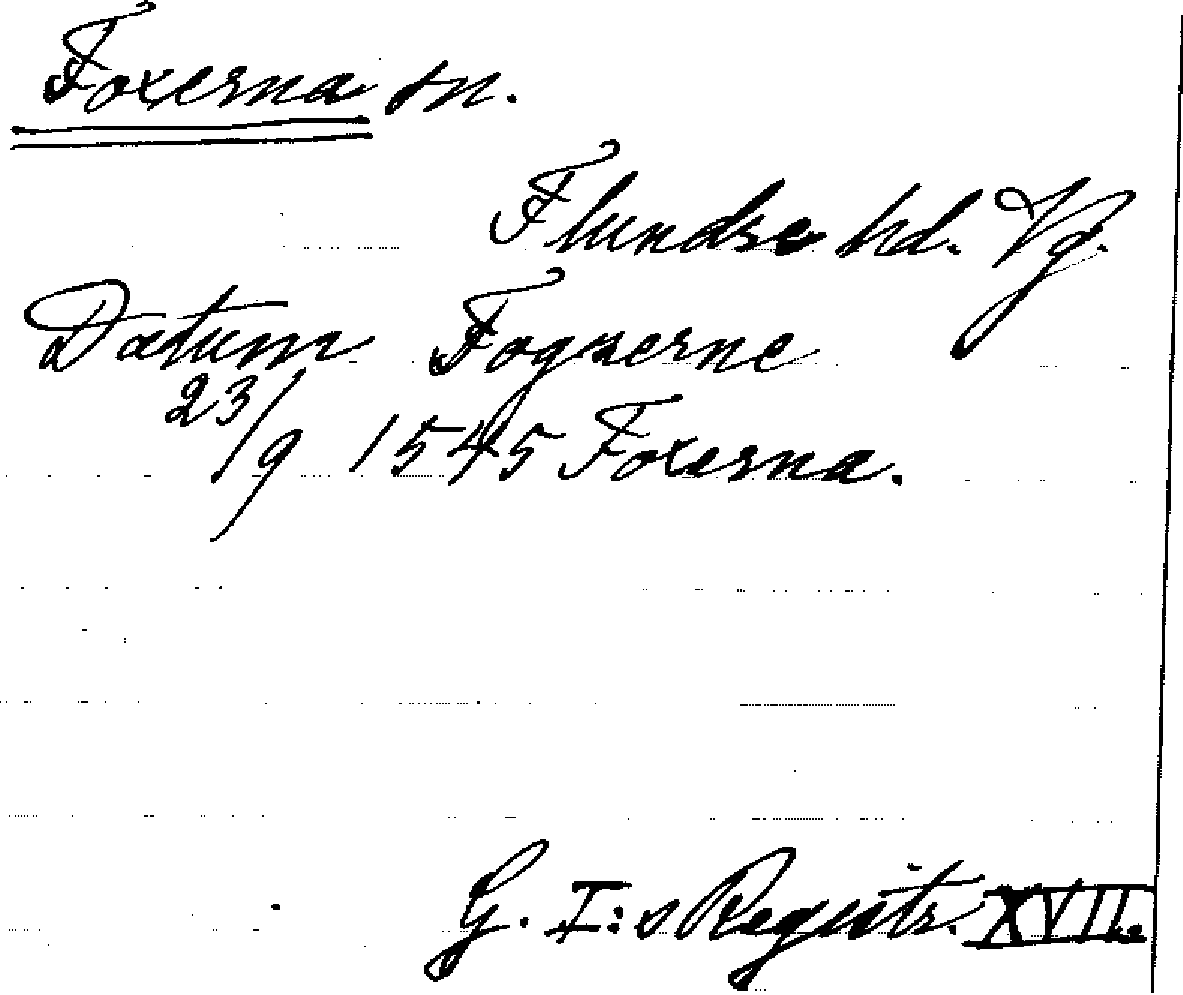 Foxerna sn.
Flundre hd. Vg.
Datum Fogxerne
23/9 1545 Foxerna.
G. I:s Registr. XVII.